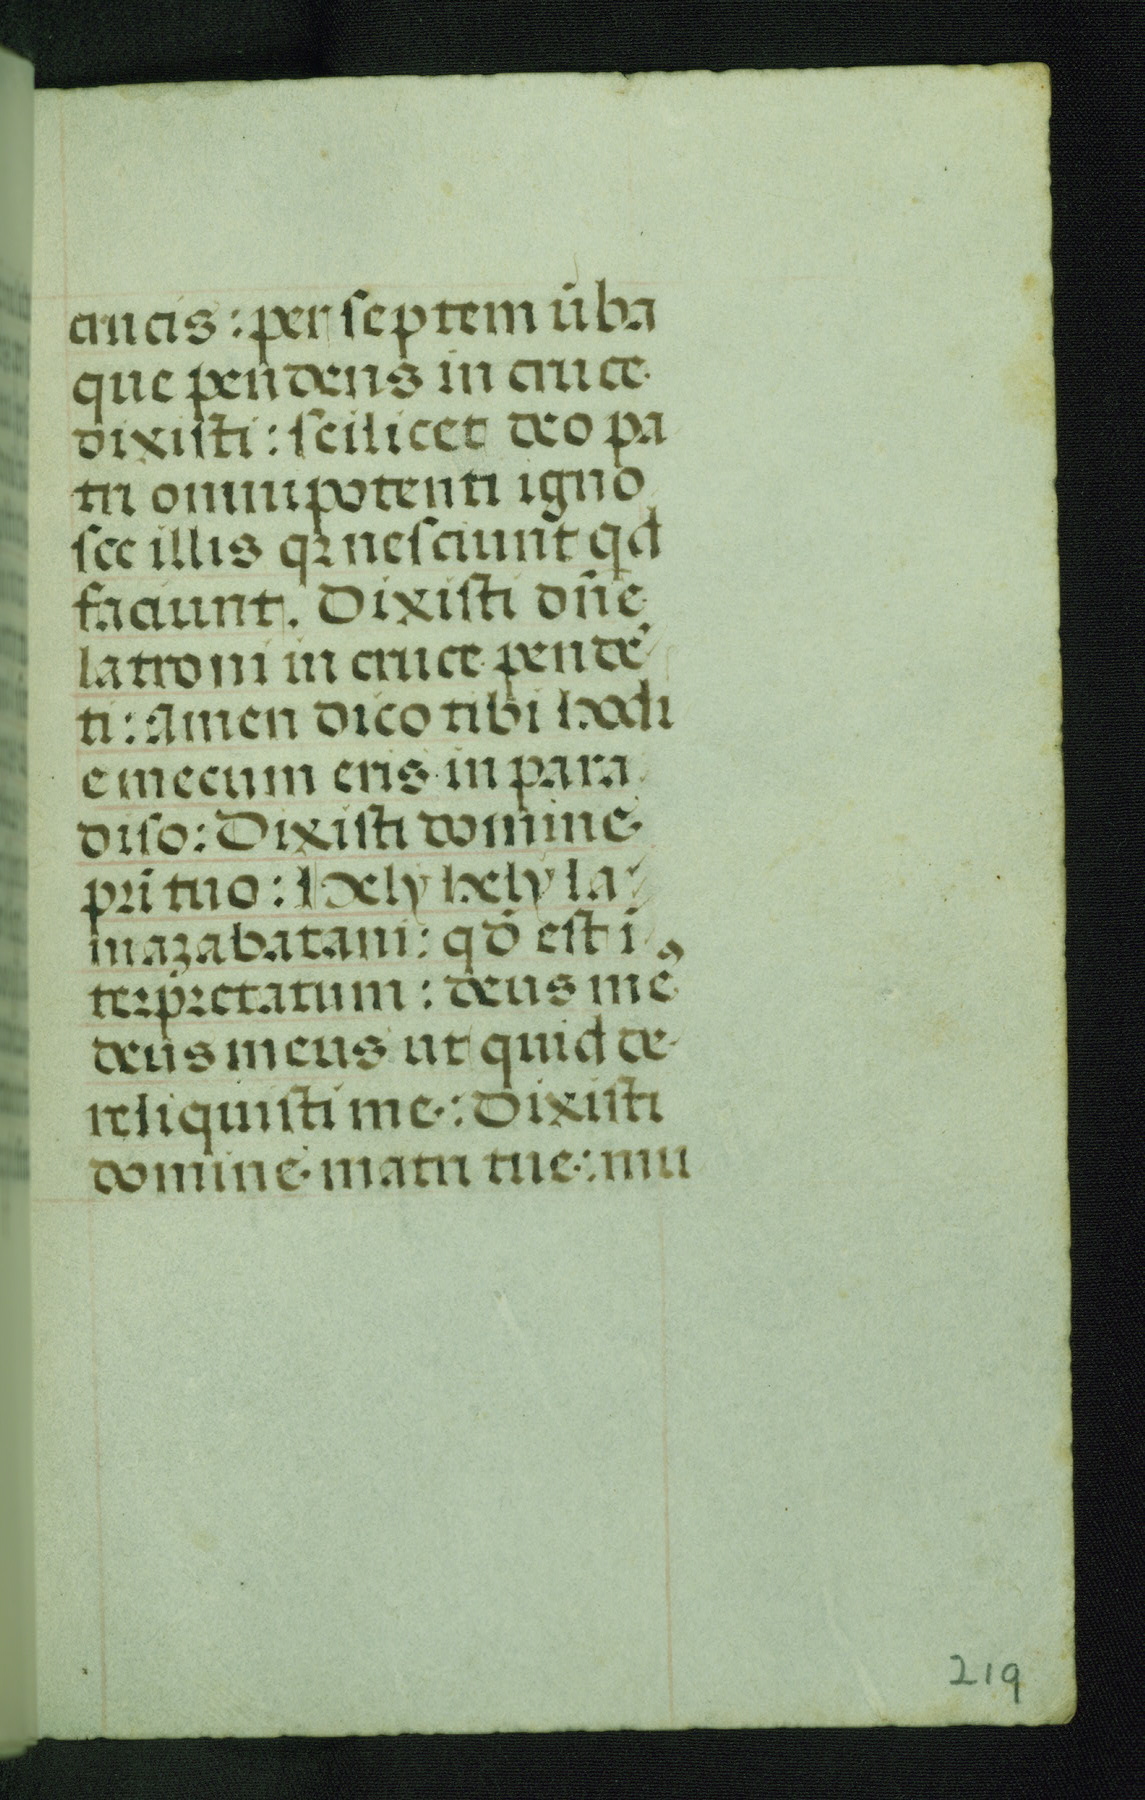 crucis : per septem ūba
que pendens in cruce
dixisti : scilicet deo pa
tri omnipotenti igno
sce illis qꝛ nesciunt qd
faciunt . Dixisti dn̄e
latroni in cruce pendē
ti : Amen dico tibi hodi
e mecum eris in para
diso : Dixisti domine
pr̄i tuo : Hely hely la
mazabatani : qđ est ī
terp̄retatum : deus meꝰ
deus meus ut quid de
reliquisti me : Dixisti
domine matri tue : mu
219